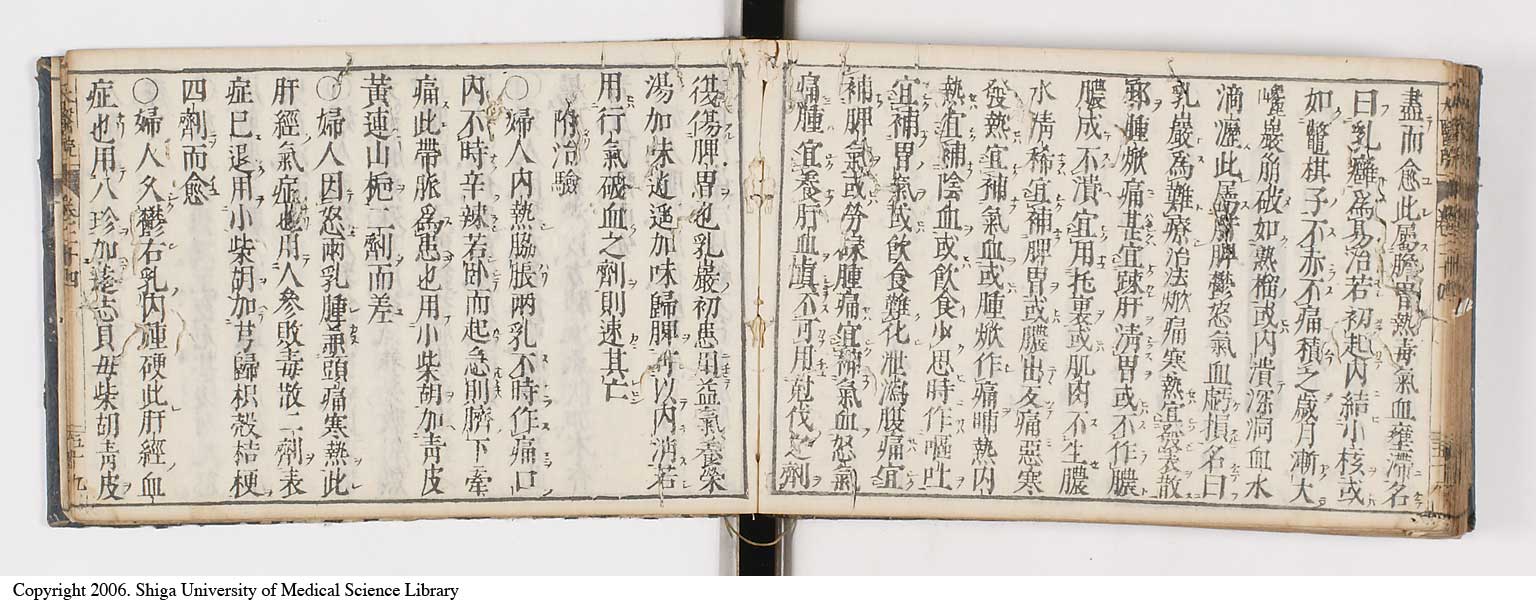 盡而愈此属膽胃熱毒氣血壅滯名
曰乳癰爲易治若初起内結小核或
如鼈棋子不赤不痛積之歳月漸大
巖崩破如熟榴或内潰深洞血水
滴瀝此属肝脾鬱怒氣血虧損名曰
乳巖爲難療治法焮痛寒熱宜發表散
邪腫焮痛甚宜踈肝清胃或不作膿
膿成不潰宜用托裏或肌肉不生膿
水清稀宜補脾胃或膿出反痛惡寒
發熱宜補氣血或腫焮作痛晡熱内
熱宜補陰血或飲食少思時作嘔吐
宜補胃氣或飲食難化泄瀉腹痛宜
補脾氣或勞碌腫痛宜補氣血怒氣
痛腫宜養肝血慎不可用尅伐之劑
復傷脾胃也乳巖初患用益氣養榮
湯加味逍遥加味歸脾可以内消若
用行氣破血之劑則速其亡
附治驗
○婦人内熱脇脹兩乳不時作痛口
内不時辛辣若卧而起急則臍下牽
痛此帶脈爲患也用小柴胡加青皮
黄連山梔二劑而差
○婦人因怒兩乳腫兼頭痛寒熱此
肝經氣症也用人參敗毒散二劑表
症已退用小柴胡加芎歸枳殻桔梗
四劑而愈
○婦人久鬱右乳内腫硬此肝經血
症也用八珍加遠志貝母柴胡青皮
Copyright 2006. Shiga University of Medical Science Library